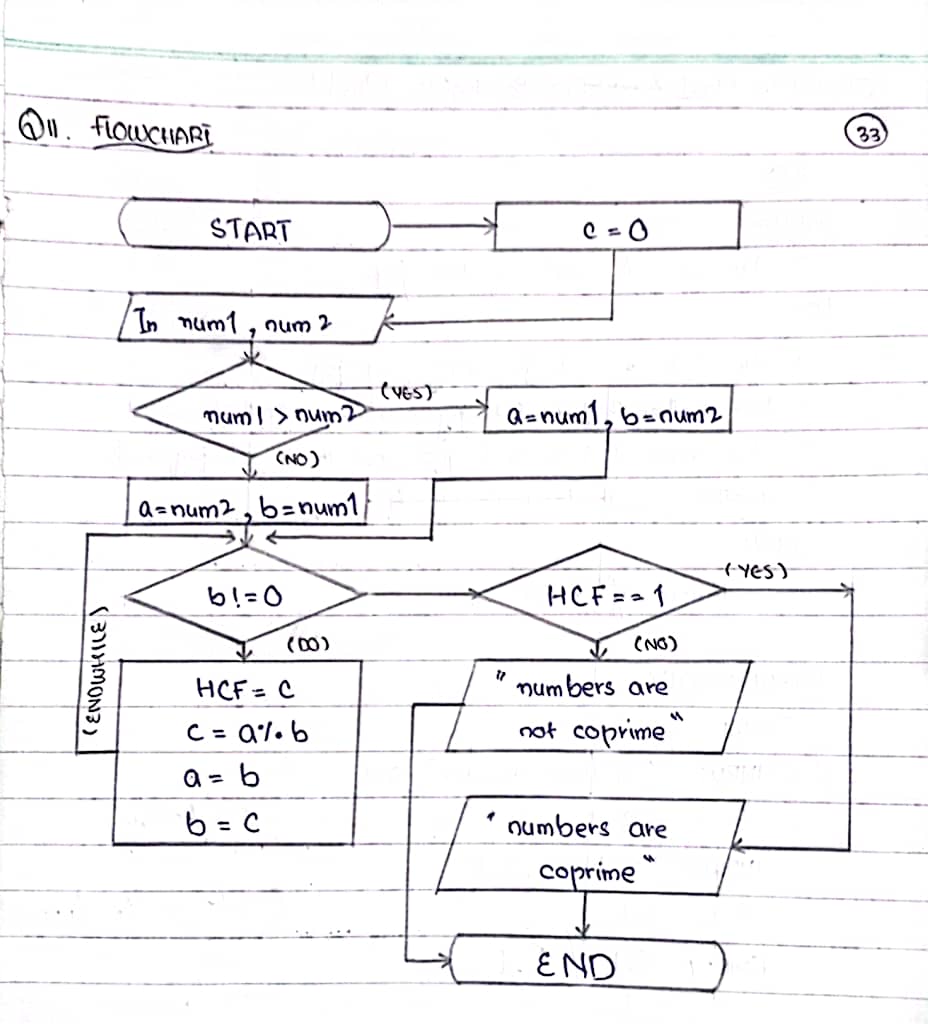 Q11. FLOWCHART
33
START
c = 0
In num1, num2
num1 > num2
(YES)
a=num1, b=num2
(NO)
a=num2, b=num1
b!=0
HCF==1
(YES)
(DO)
(NO)
(ENDWHILE)
HCF = C
C = a%b
a = b
b = C
"numbers are
not coprime"
"numbers are
coprime"
END